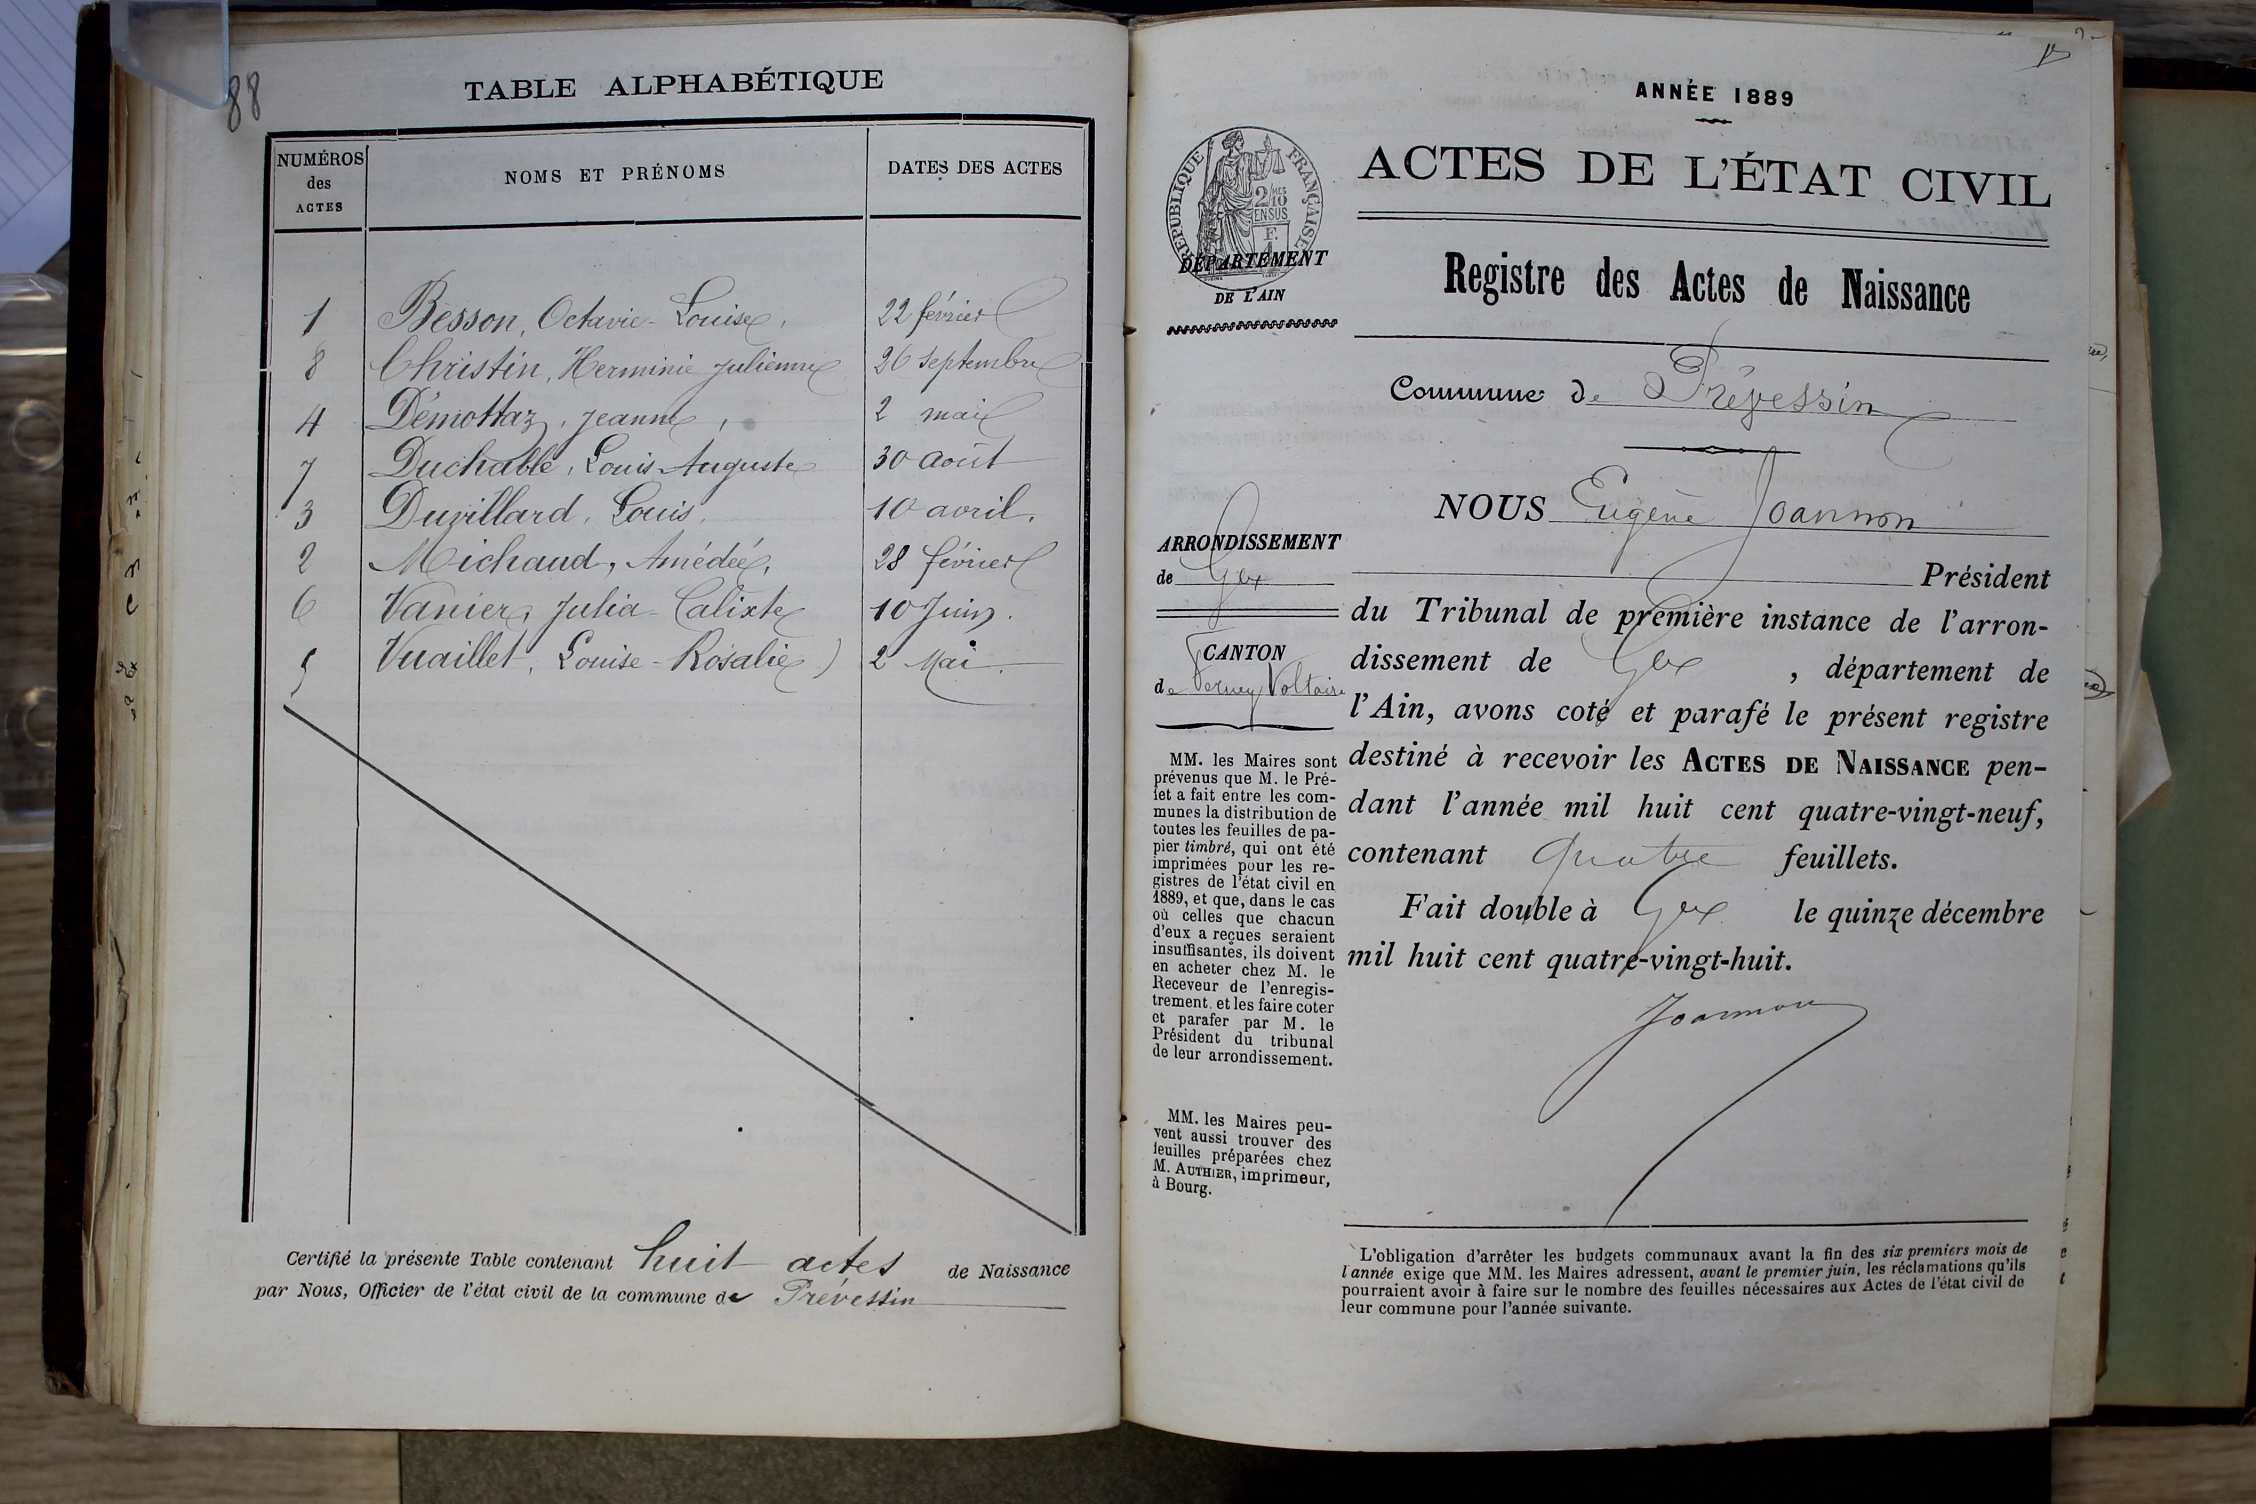 88
TABLE ALPHABÉTIQUE
NUMÉROS
des
ACTES
NOMS ET PRÉNOMS
DATES DES ACTES
1 Besson, Octavie-Louise, 22 février
8 Christin, Herminie Julienne 26 septembre
4 Démottaz, Jeanne, 2 mai
7 Duchable, Louis-Auguste 30 août
3 Duvillard, Louis, 10 avril.
2 Michaud, Amédée, 28 février
6 Vanier, Julia-Calixte 10 Juin.
5 Vuaillet, Louise-Rosalie 2 Mai.
Certifié la présente Table contenant huit actes de Naissance
par Nous, Officier de l'état civil de la commune de Prévessin
ANNÉE 1889
RÉPUBLIQUE FRANÇAISE
2/10
EN SUS
F.
DÉPARTEMENT
DE L'AIN
ACTES DE L'ÉTAT CIVIL
Registre des Actes de Naissance
Commune de Prévessin
NOUS Eugène Joannon
Président
du Tribunal de première instance de l'arron-
dissement de Gex, département de
l'Ain, avons coté et parafé le présent registre
destiné à recevoir les ACTES DE NAISSANCE pen-
dant l'année mil huit cent quatre-vingt-neuf,
contenant quatre feuillets.
Fait double à Gex le quinze décembre
mil huit cent quatre-vingt-huit.
Joannon
ARRONDISSEMENT
de Gex
CANTON
de Ferney Voltaire
MM. les Maires sont
prévenus que M. le Pré-
fet a fait entre les com-
munes la distribution de
toutes les feuilles de pa-
pier timbré, qui ont été
imprimées pour les re-
gistres de l'état civil en
1889, et que, dans le cas
où celles que chacun
d'eux a reçues seraient
insuffisantes, ils doivent
en acheter chez M. le
Receveur de l'enregis-
trement et les faire coter
et parafer par M. le
Président du tribunal
de leur arrondissement.
MM. les Maires peu-
vent aussi trouver des
feuilles préparées chez
M. AUTHIER, imprimeur,
à Bourg.
L'obligation d'arrêter les budgets communaux avant la fin des six premiers mois de
l'année exige que MM. les Maires adressent, avant le premier juin, les réclamations qu'ils
pourraient avoir à faire sur le nombre des feuilles nécessaires aux Actes de l'état civil de
leur commune pour l'année suivante.